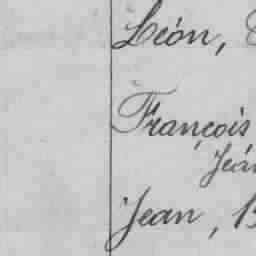 Léon,
François
Jean, B